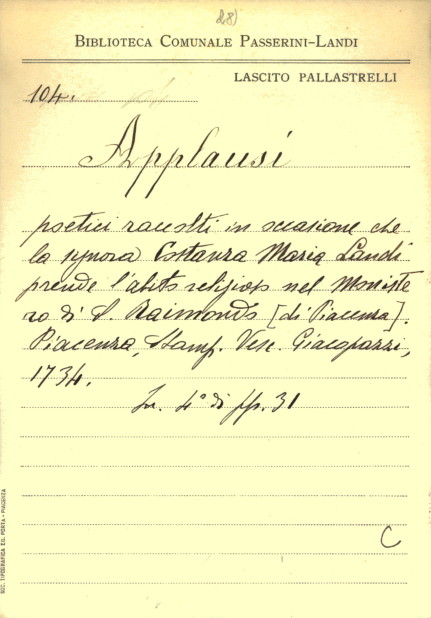 28)
BIBLIOTECA COMUNALE PASSERINI-LANDI
LASCITO PALLASTRELLI
104.
Applausi
poetici raccolti in occasione che
la signora Costanza Maria Landi
prende l'abito religioso nel Moniste
ro di S. Raimondo [di Piacenza].
Piacenza, Stamp. Vesc. Giacopazzi,
1734.
In. 4° di pp. 31
C
SOC. TIPOGRAFICA ED. PORTA - PIACENZA